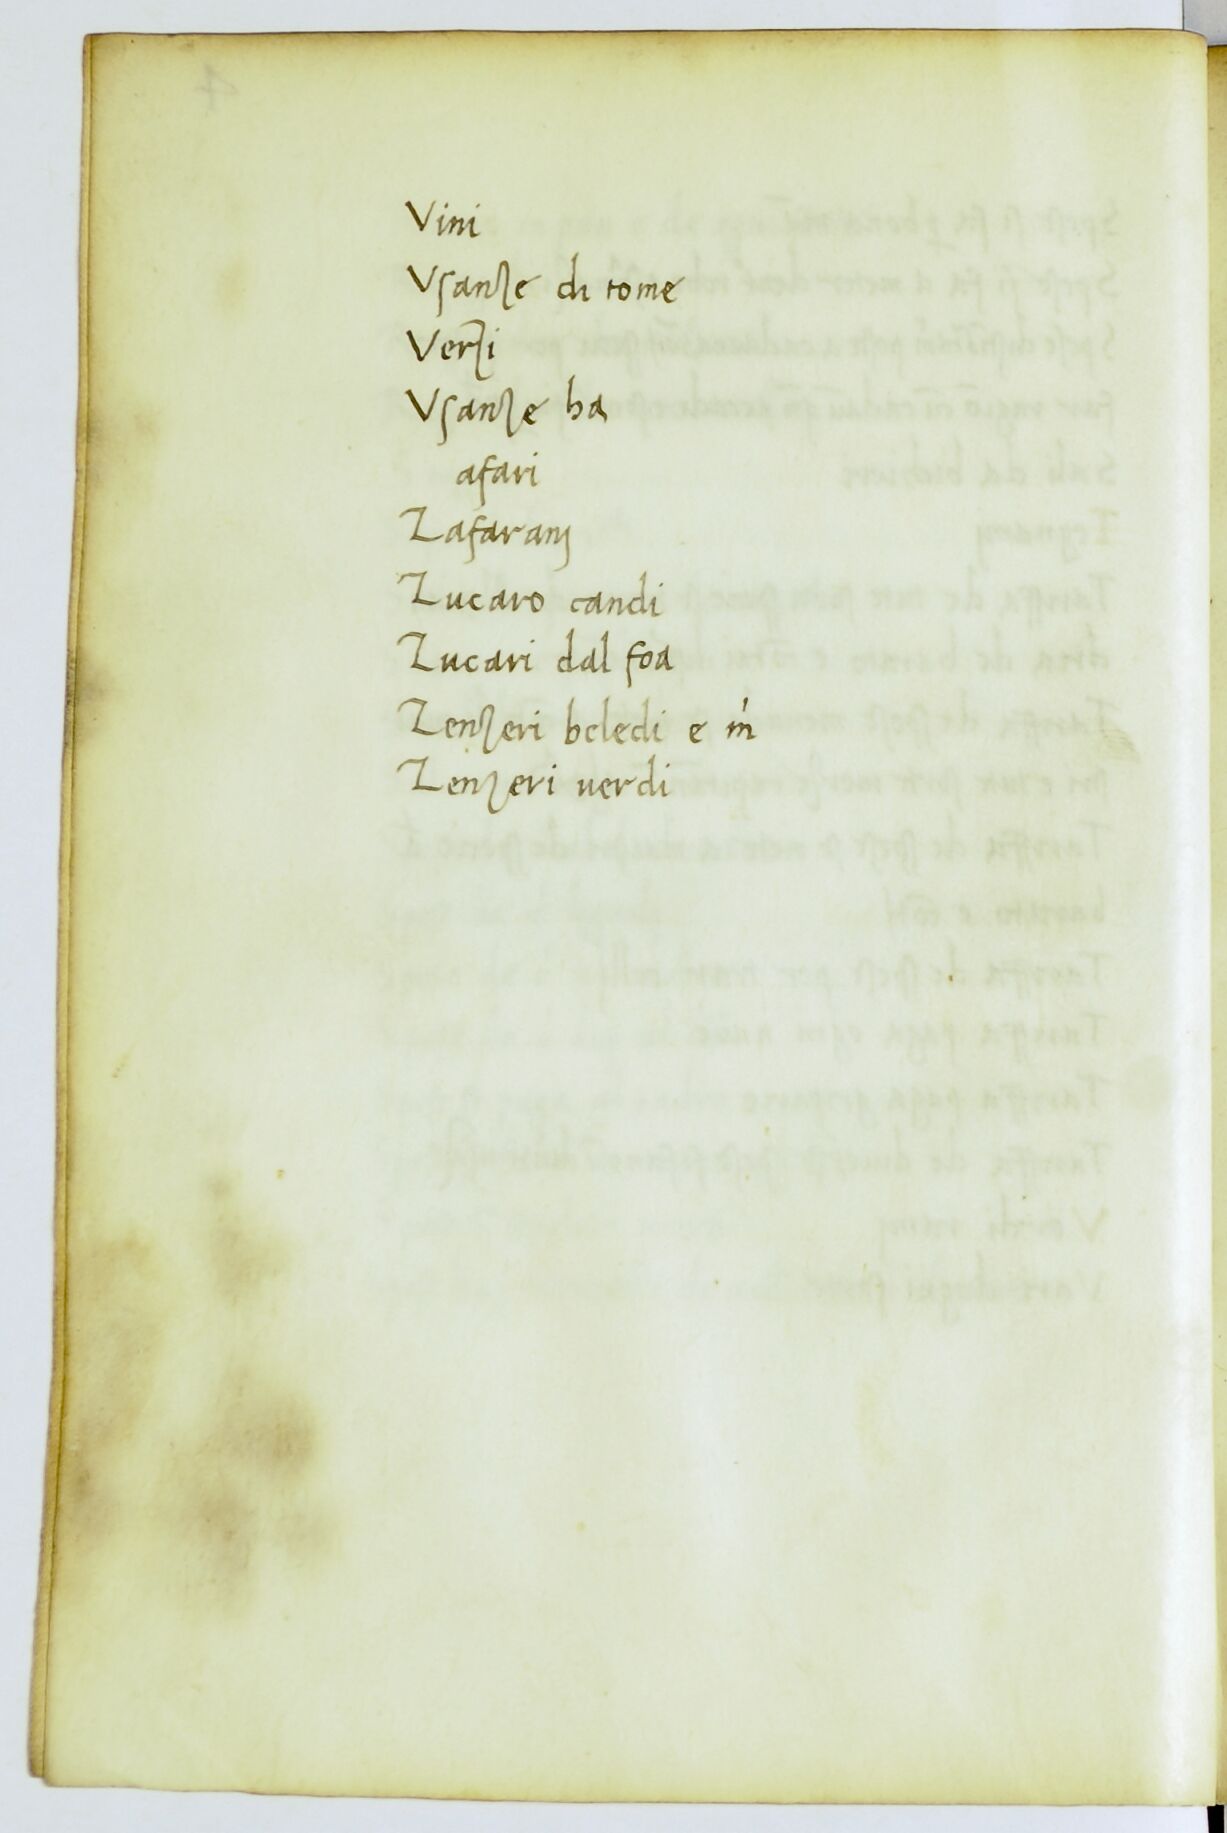 Vini
Vsanze di tome
Verzi
Vsanze ha
afari
Zafaranj
Zucaro candi
Zucari dal foa
Zenzeri beledi e m̃
Zenzeri uerdi